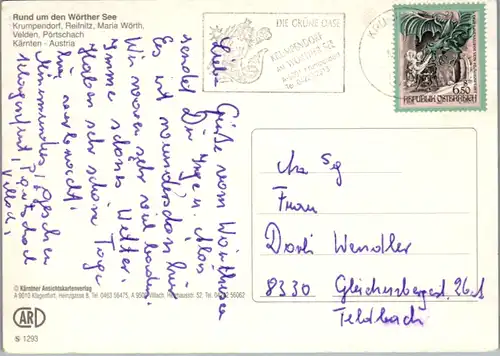 Rund um den Wörther See
Krumpendorf, Reifnitz, Maria Wörth,
Velden, Pörtschach
Kärnten - Austria
DIE GRÜNE OASE
KRUMPENDORF
AM WÖRTHER SEE
6.50
REPUBLIK ÖSTERREICH
Liebe
Grüße vom Wörthersee
sendet Dir Inge u. Alois
Es ist wunderschön hier
Wir waren sehr viel baden.
Immer schönes Wetter.
Haben sehr schöne Tage
hier verbracht.
gesehen
Klagenfurt,
Villach,
An Sg
Frau
Dorli Wendler
8330 Gleichenbergerst. 26
Feldbach
© Kärntner Ansichtskartenverlag
A 9010 Klagenfurt, Heinzgasse 8, Tel. 0463 56475, A 9500 Villach,
CARD
S 1293